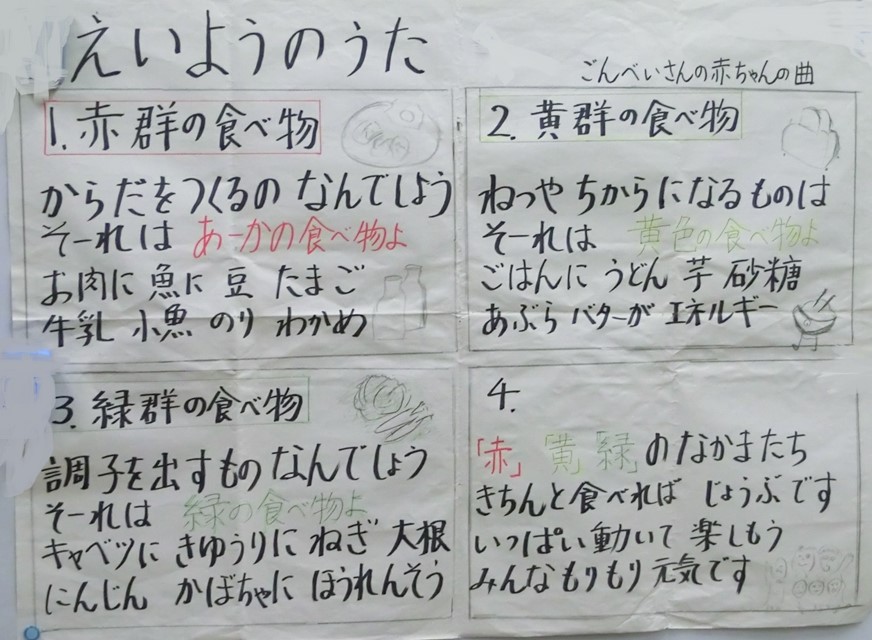 えいようのうた
ごんべいさんの赤ちゃんの曲
1.赤群の食べ物
からだをつくるの なんでしょう
そーれは あーかの食べ物よ
お肉に 魚に 豆 たまご
牛乳 小魚 のり わかめ
2.黄群の食べ物
ねつや ちからに なるものは
そーれは 黄色の食べ物よ
ごはんに うどん 芋 砂糖
あぶら バターが エネルギー
3.緑群の食べ物
調子を出すもの なんでしょう
そーれは 緑の食べ物よ
キャベツに きゆうりに ねぎ 大根
にんじん かぼちゃに ほうれんそう
4.
「赤」「黄」「緑」の なかまたち
きちんと食べれば じょうぶです
いっぱい動いて 楽しもう
みんなもりもり 元気です